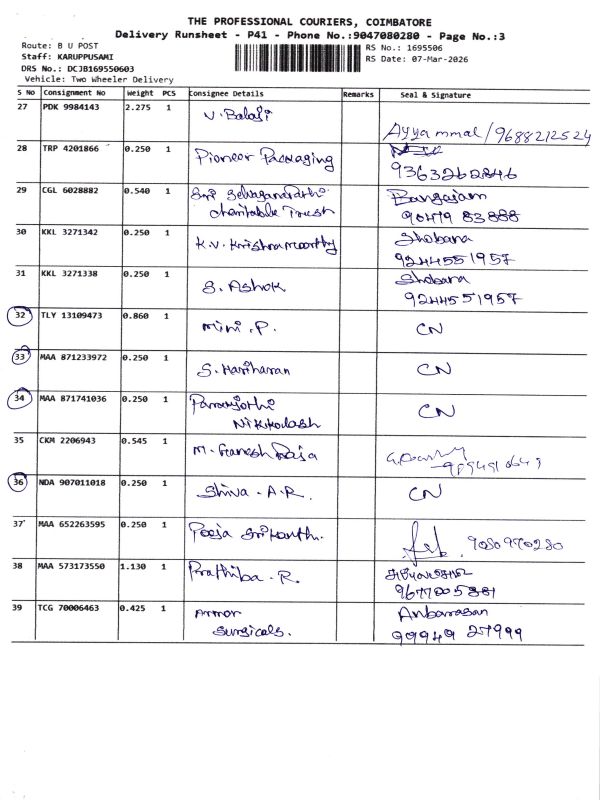 THE PROFESSIONAL COURIERS, COIMBATORE
Delivery Runsheet - P41 - Phone No.:9047080280 - Page No.:3
Route: B U POST
RS No.: 1695506
Staff: KARUPPUSAMI
RS Date: 07-Mar-2026
DRS No.: DCJB169550603
Vehicle: Two Wheeler Delivery
S No Consignment No Weight PCS Consignee Details Remarks Seal & Signature
27 PDK 9984143 2.275 1 V. Balaji
Ayyammal/9688212524
28 TRP 4201866 0.250 1 Pioneer Packaging
9363262846
29 CGL 6028882 0.540 1 Sri Selvaganapathi Bangajam
Charitable Trust 90479 83888
30 KKL 3271342 0.250 1 K.V. Krishnamoorthy Shobana
9244551957
31 KKL 3271338 0.250 1 S. Ashok Shobana
9244551957
32 TLY 13109473 0.860 1 Mini.P. CN
33 MAA 871233972 0.250 1 S. Hariharan CN
34 MAA 871741036 0.250 1 CN
35 CKM 2206943 0.545 1 M. Ganesh Raja
36 NDA 907011018 0.250 1 Shiva.A.R. CN
37 MAA 652263595 0.250 1 Pooja Srikanth.
9080970280
38 MAA 573173550 1.130 1 Prathiba.R.
9677005881
39 TCG 70006463 0.425 1 Armor Anbarasan
Surgicals. 99949 27999